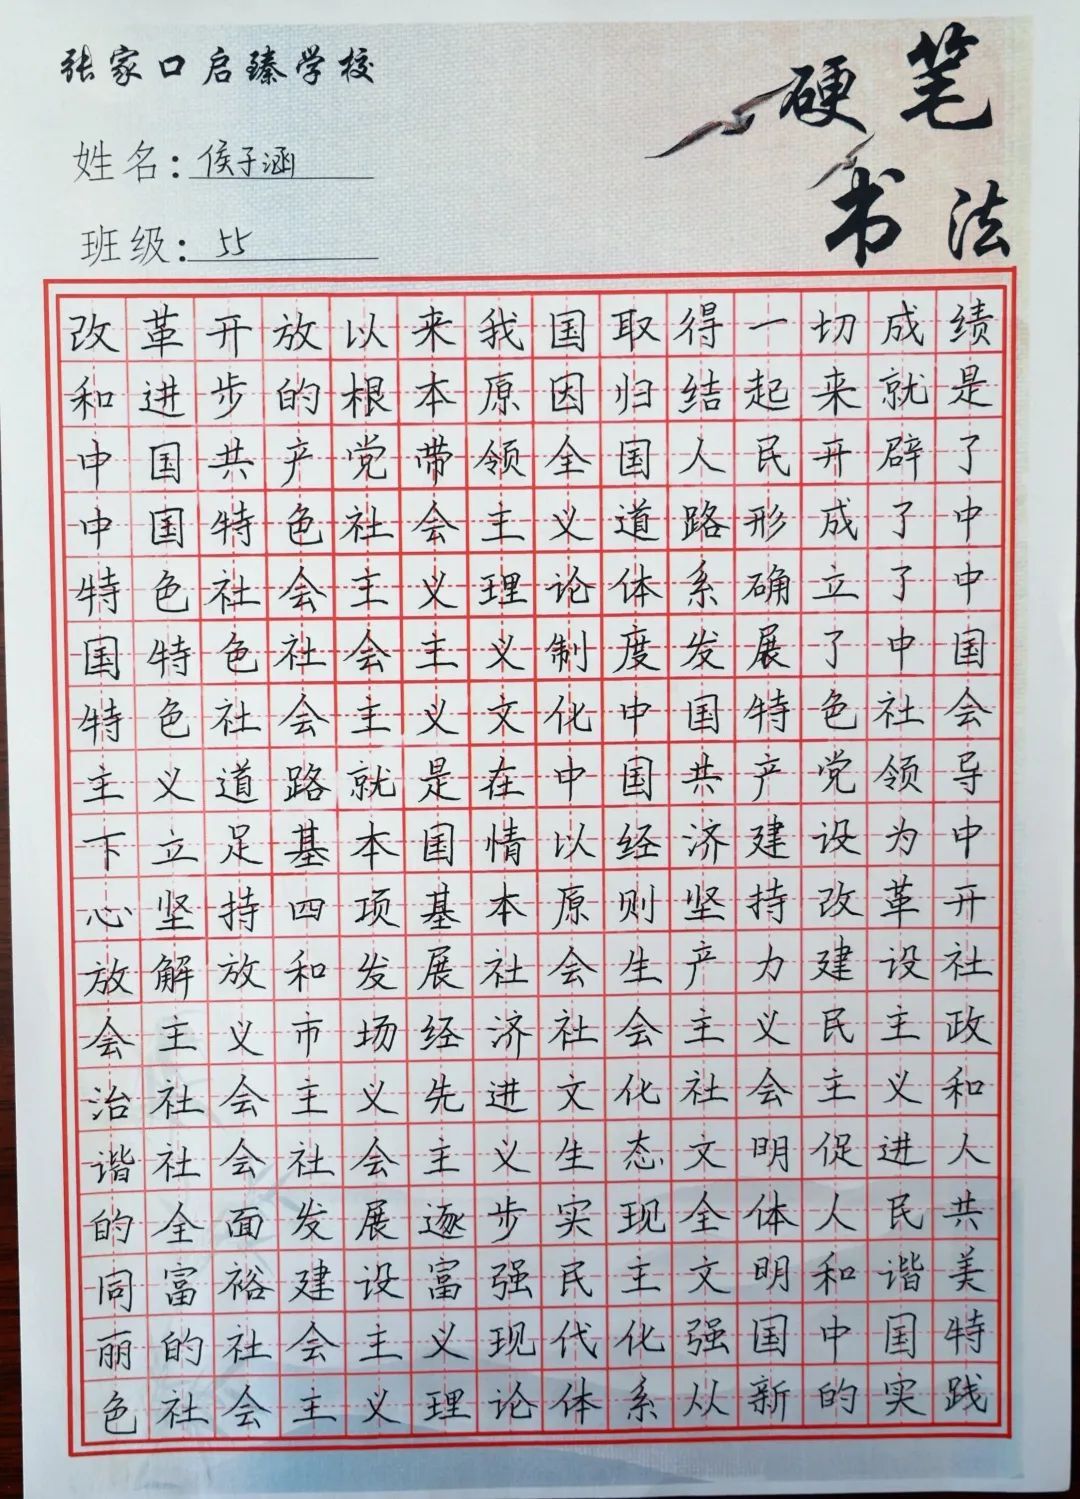 张家口启臻学校
硬笔书法
姓名：侯子涵
班级：55
改革开放以来我国取得一切成绩
和进步的根本原因归结起来就是
中国共产党带领全国人民开辟了
中国特色社会主义道路形成了中
特色社会主义理论体系确立了中
国特色社会主义制度发展了中国
特色社会主义文化中国特色社会
主义道路就是在中国共产党领导
下立足基本国情以经济建设为中
心坚持四项基本原则坚持改革开
放解放和发展社会生产力建设社
会主义市场经济社会主义民主政
治社会主义先进文化社会主义和
谐社会社会主义生态文明促进人
的全面发展逐步实现全体人民共
同富裕建设富强民主文明和谐美
丽的社会主义现代化强国中国特
色社会主义理论体系从新的实践